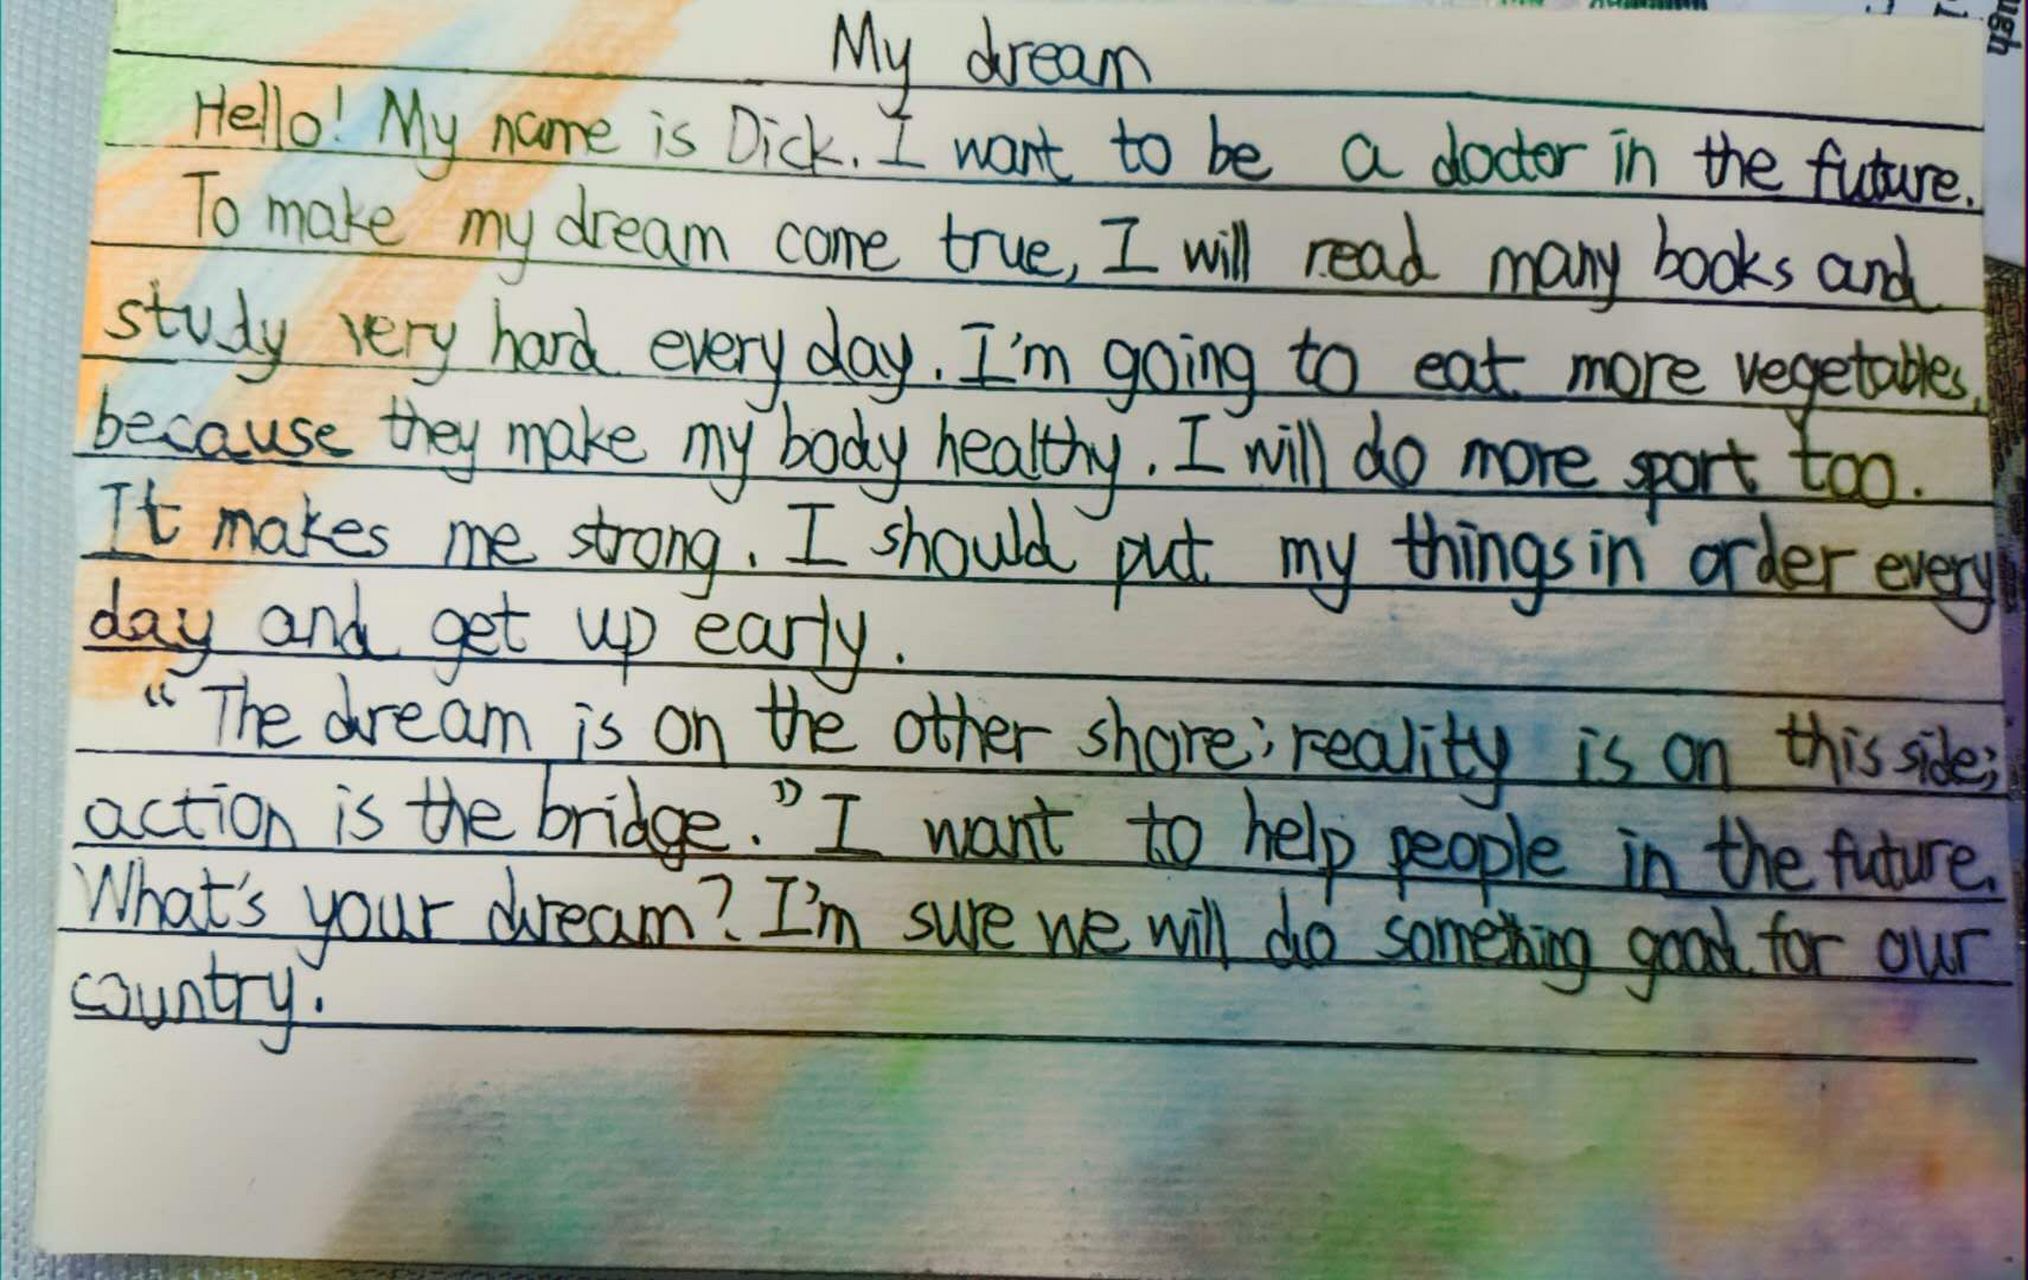 My dream
Hello! My name is Dick. I want to be a doctor in the future.
To make my dream come true, I will read many books and
study very hard every day. I'm going to eat more vegetables,
because they make my body healthy. I will do more sport too.
It makes me strong. I should put my things in order every
day and get up early.
“The dream is on the other shore; reality is on this side;
action is the bridge.” I want to help people in the future.
What's your dream? I'm sure we will do something good for our
country.